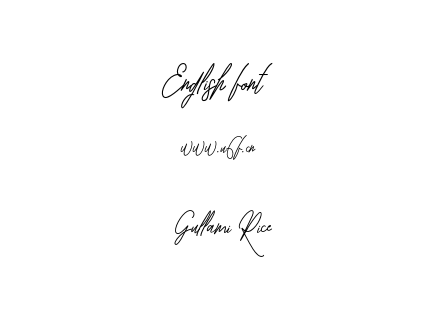 English font
www.uff.cn
Gullami Rice